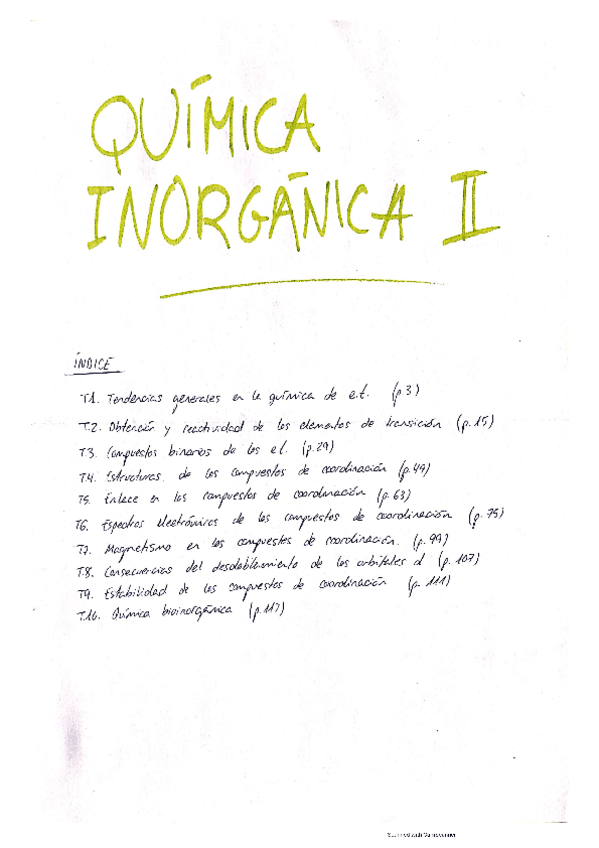 QUÍMICA
INORGÁNICA II
ÍNDICE
T.1. Tendencias generales en la química de e.t. (p.3)
T.2. Obtención y reactividad de los elementos de transición (p.15)
T.3. Compuestos binarios de los e.t. (p.29)
T.4. Estructuras de los compuestos de coordinación (p.49)
T.5. Enlace en los compuestos de coordinación (p.63)
T.6. Espectros electrónicos de los compuestos de coordinación (p.75)
T.7. Magnetismo en los compuestos de coordinación. (p.99)
T.8. Consecuencias del desdoblamiento de los orbitales d (p.107)
T.9. Estabilidad de los compuestos de coordinación (p.111)
T.10. Química bioinorgánica (p.117)
Scanned with CamScanner